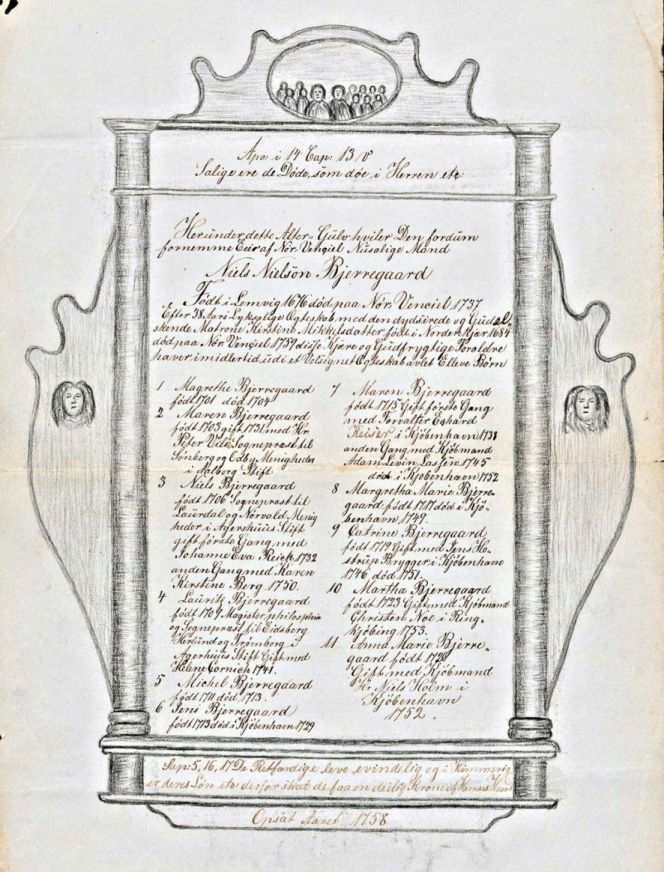 Apo: i 14 Cap: 13 v
Salige ere de Döde, som döe i Herren etc
Herunder dette Alters Gulv hviler Den fordum
fornemme Eier af Nör. Vengiel Nusalige Mand
Niels Nielson Bjerregaard
Födt i Lemvig 1676 död paa Nör. Venciel 1737
Efter 38 Aars Lyksalige Egteskab med den dydziirede og Gudel-
skende Matrone Kirstine Mikkelsdatter födt i Norden Kjær 1684
död paa Nör Vengiel 1739 disse Kjære og Gudfrygtige Foroldre
haver imidlertid, udi et Velsignet Egteskab avlet Elleve Börn
1 Magrethe Bjerregaard
födt 1701 död 1704
2 Maren Bjerregaard
födt 1703 gift 1731 med Hr.
Peter Vite Sogneprest til
Sönberg og Odby Menigheder
i Aalborg Stift
3 Niels Bjerregaard
födt 1706 Sogneprest til
Laurdal og Norvald Menig
heder i Agershuus Stift
gift förste Gang med
Johanne Eva 1732
anden Gang med Karen
Kirstene Berg 1750.
4 Lauritz Bjerregaard
födt 1709 Magister philosophiæ
og Sogneprest til Eidsberg
Herlund og Trömborg i
Agerhuus Stift Gift med
Helene Cornich 1741.
5 Michel Bjerregaard
födt 1711 död 1713.
6 Jens Bjerregaard
födt 1713 död i Kjöbenhavn 1729
7 Maren Bjerregaard
födt 1715 Gift förste Gang
med Forvalter Eghard
Keiser i Kjöbenhavn 1738
anden Gang med Kjöbmand
Adam Levin Lassen 1745
död i Kjöbenhavn 1752
8 Margretha Marie Bjerre-
gaard födt 1717 död i Kjö-
benhavn 1749.
9 Catrine Bjerregaard
födt 1719 Gift med Jens Ho-
strup Brygger i Kjöbenhavn
1746 död 1751.
10 Martha Bjerregaard
födt 1723 Gift med Kjöbmand
Christen Noe i Ring
kjöbing 1753.
11 Anna Marie Bjerre-
gaard födt 1726
Gift med Kjöbmand
Hr. Niels Holm i
Kjöbenhavn
1752.
Sap: 5, 16, 17 De Retfærdige leve evindelig og i Himmerig
er deres Lön etc derfor skal de faa en deilig Krone af Herrens Haand
Opsat Aaret 1758